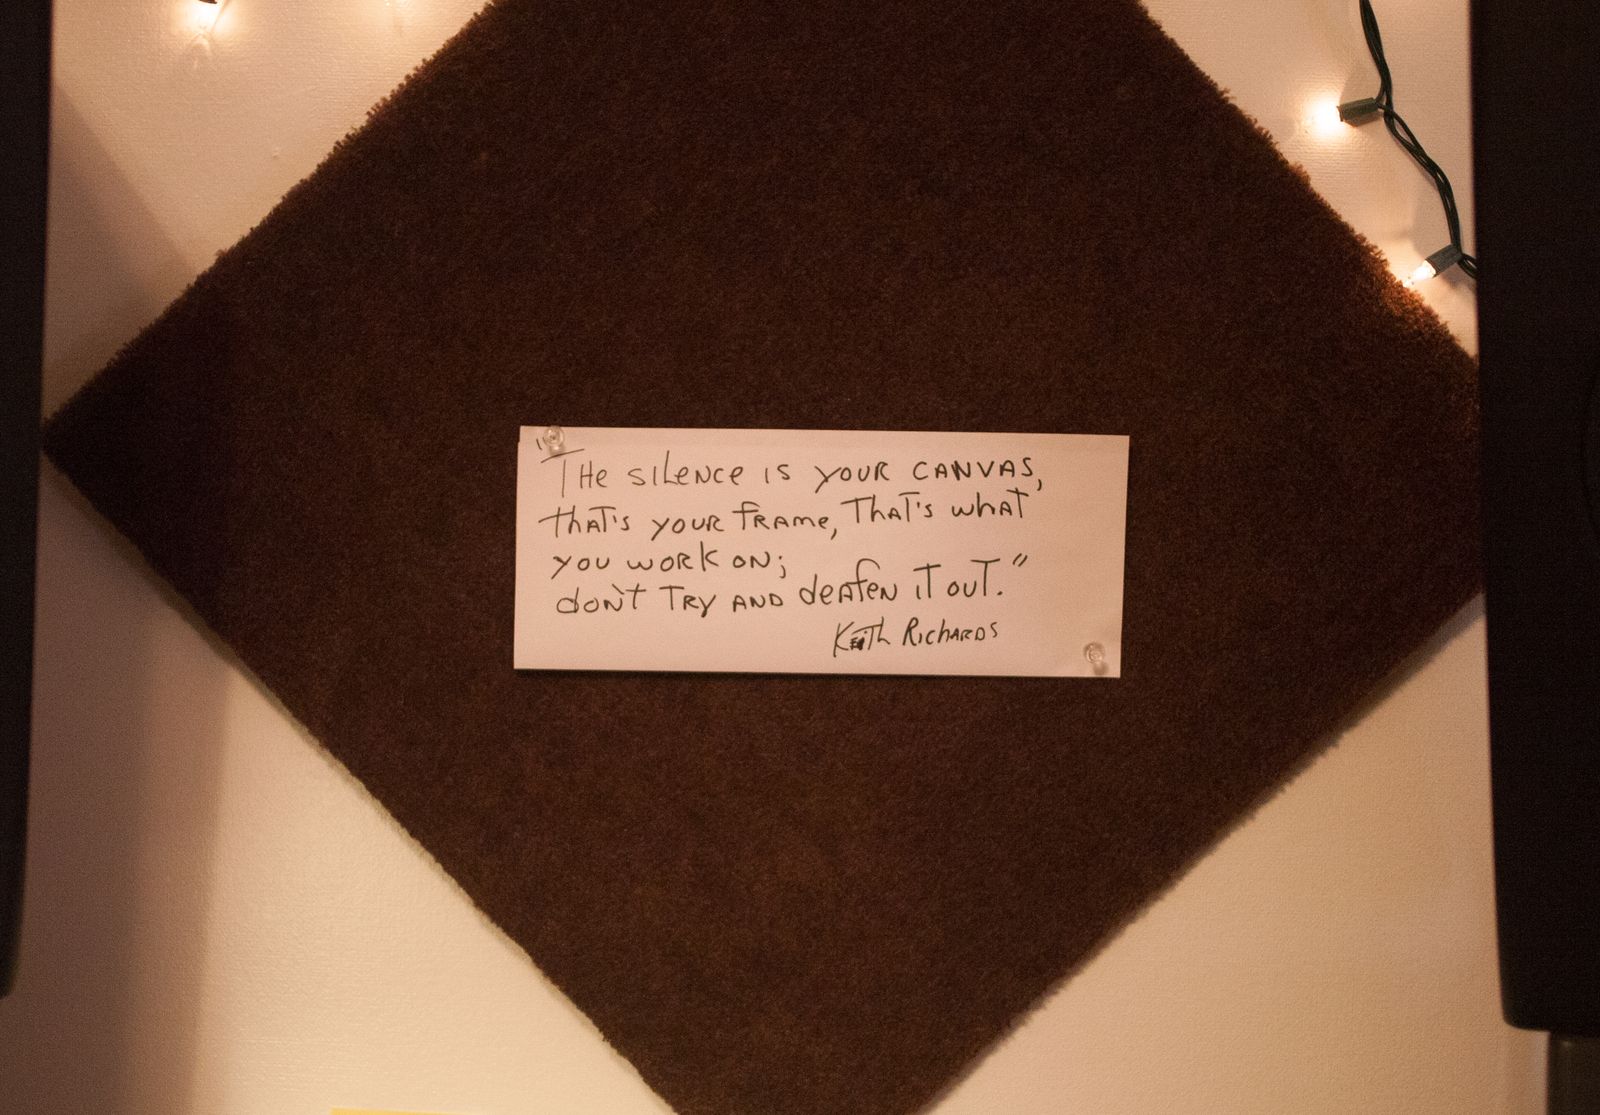 "The silence is your canvas,
that's your frame, that's what
you work on;
don't try and deafen it out."
Keith Richards